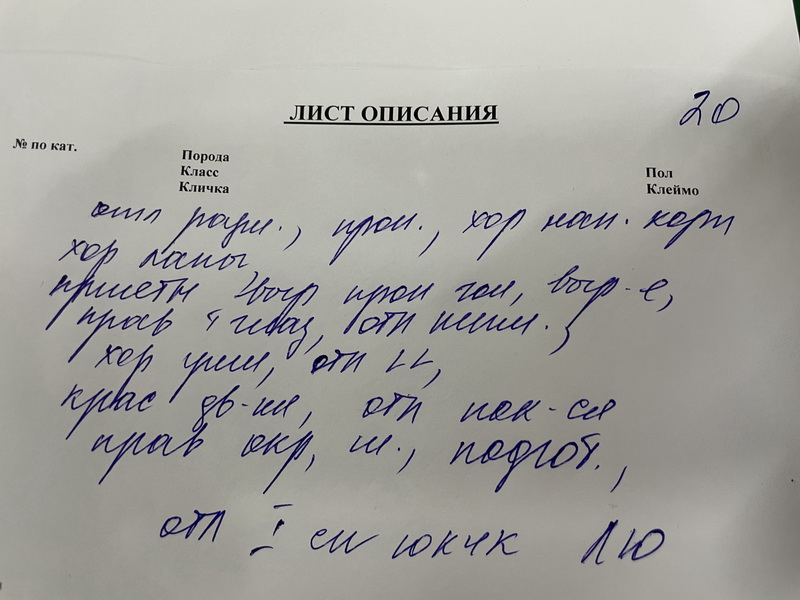 ЛИСТ ОПИСАНИЯ 20
№ по кат.
Порода
Класс Пол
Кличка Клеймо
отл разм., проп., хор нап. корп
хор лапы
приятн выр проп гол, выр-е,
прав ч глаз, отп пигм.,
хор уши, отл LL,
крас дв-ия, отл пок-ся
прав окр, ш., подгот.,
отл I см ЮКЧК ЛЮ